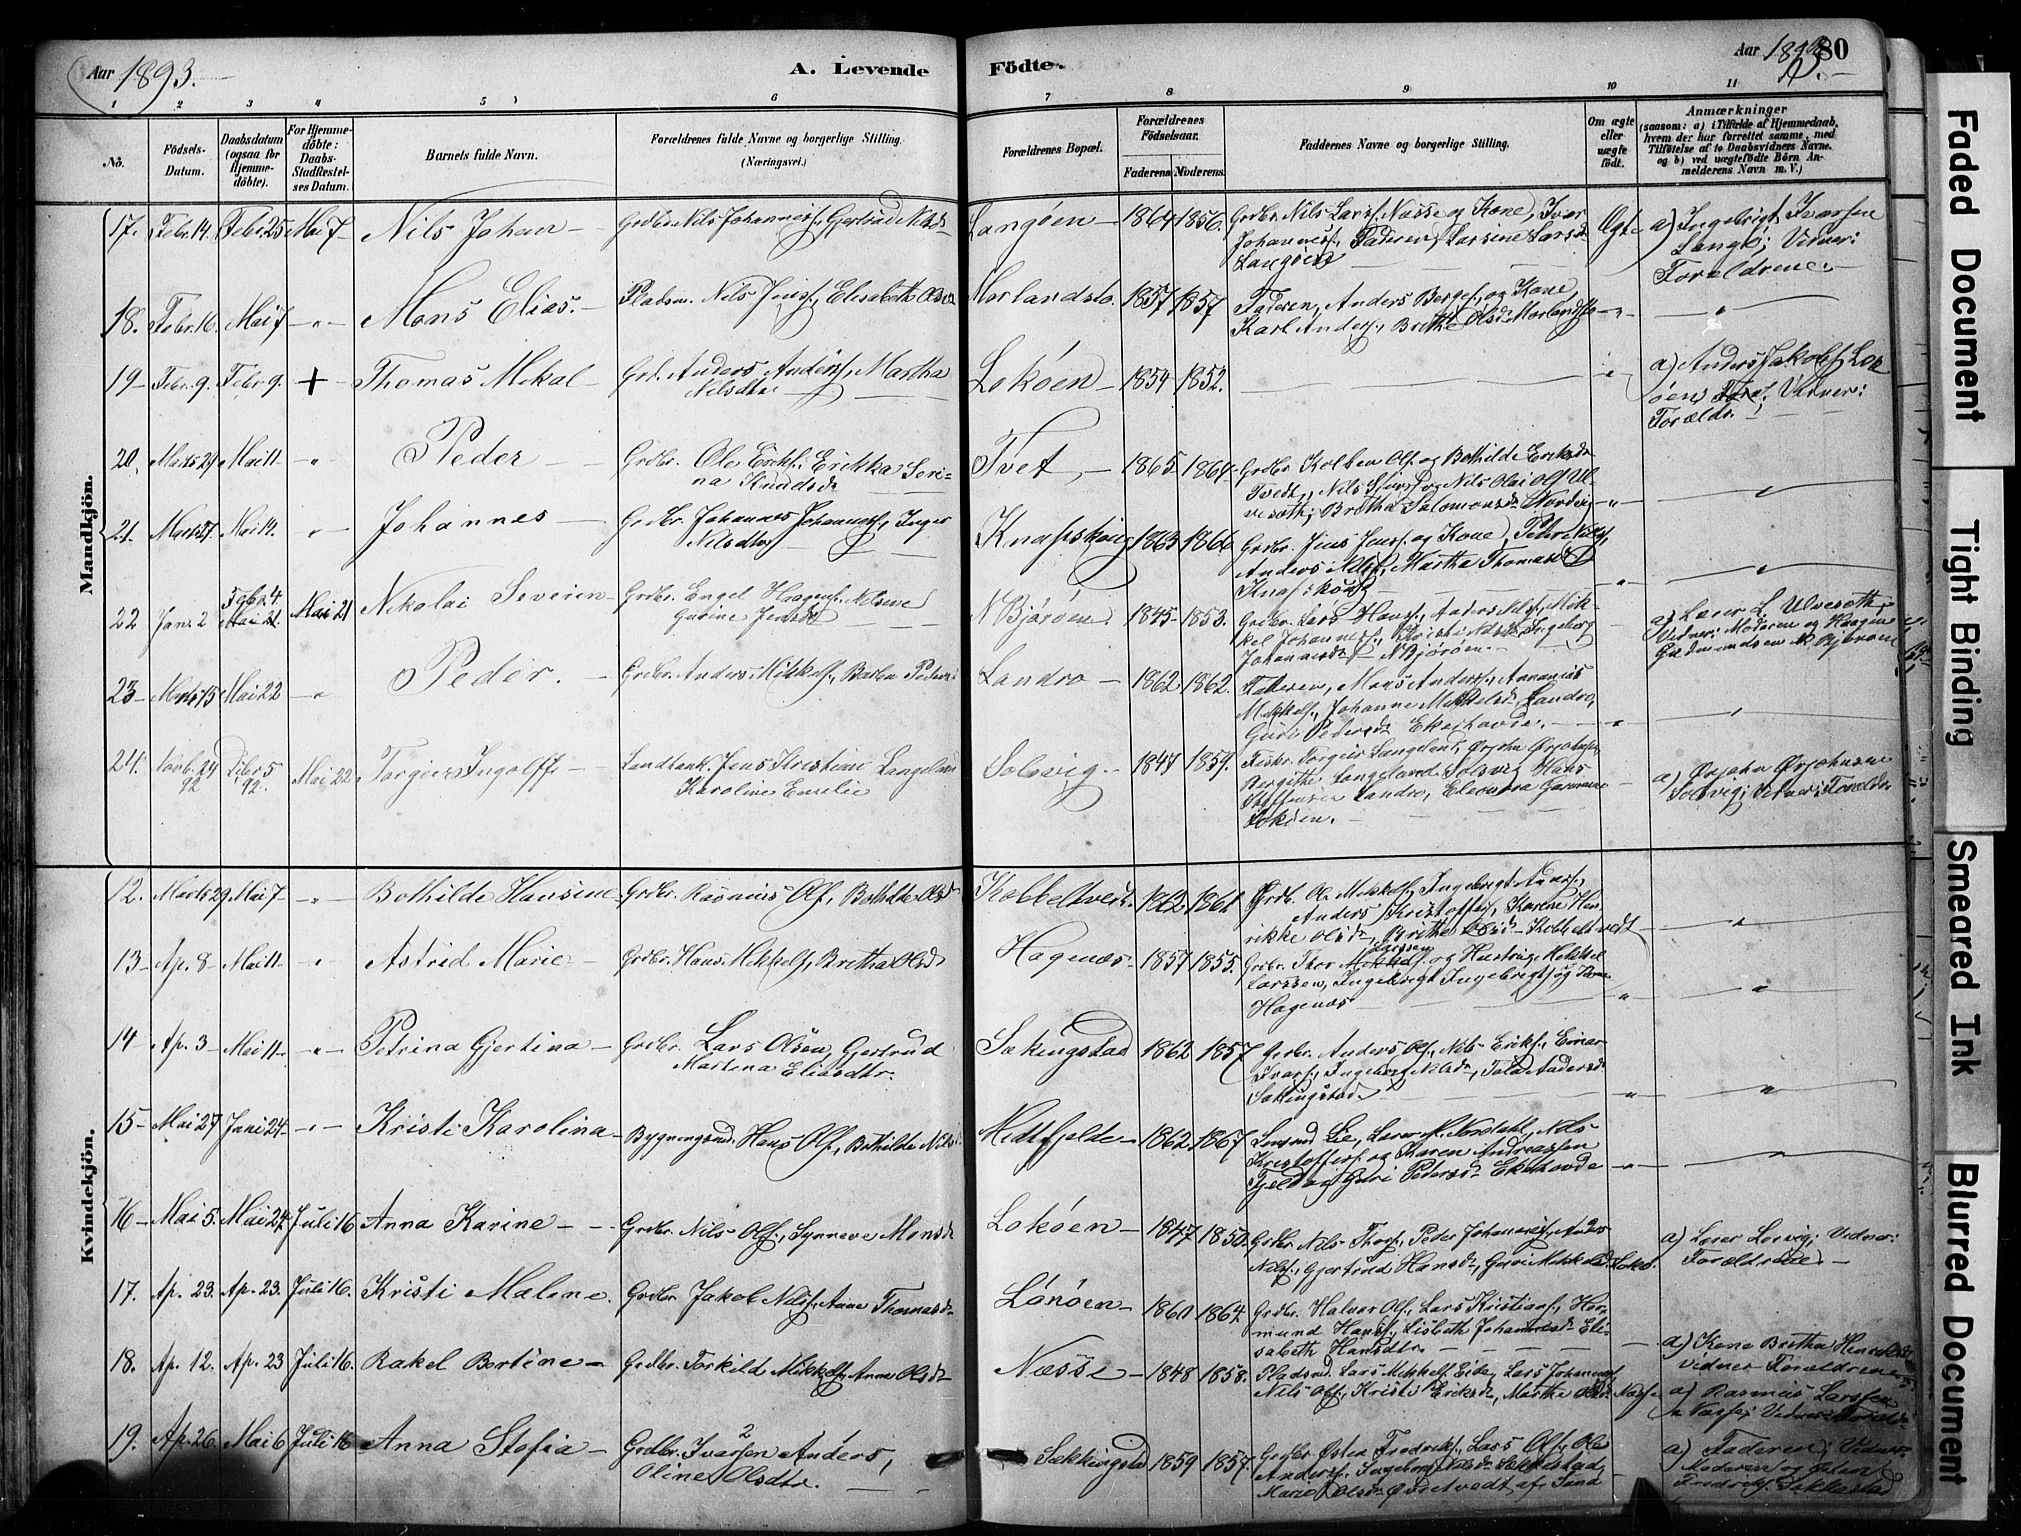 Aar 1893.
A. Levende
Födte.
Aar 1893
80
1 2 3 4 5 6 7 8 9 10 11
No.
Födsels-Datum.
Daabsdatum (ogsaa for Hjemmedöbte).
For Hjemmedöbte: Daabs-Stadfæstelses Datum.
Barnets fulde Navn.
Forældrenes fulde Navne og borgerlige Stilling.
(Næringsvei.)
Forældrenes Bopæl.
Forældrenes Födselsaar.
Faderens Moderens
Faddernes Navne og borgerlige Stilling.
Om ægte eller uægte födt.
Anmærkninger
(saasom: a) i Tilfælde af Hjemmedaab,
hvem der har forrettet samme, med
Tilföielse af to Daabsvidners Navne,
og b) ved uægtefödte Börn An-
melderens Navn m. V.)
Mandkjön.
17. Febr. 14. Febr. 25 Mai 7 Nils Johan Grdbr. Nils Johanness., Gjertrud Nilsd. Langöen 1864 1856. Grdbr. Nils Larss. Næsse og Kone, Ivar Ægte a) Ingebrigt Iversen
Johanness., Faderen, Larsine Larsd. Langö; Vidner:
Langöen Forældrene.
18. Febr. 16. Mai 7 Mons Elias. Pladsm. Nils Jenss., Elisabeth Olsd. Morlandsto. 1857 1857 Faderen, Anders Berges., og Kone,
Karl Anders., Brithe Olsd. Morlandsto
19 Febr. 9. Febr. 9. + Thomas Mikal Grd. Anders Anderss., Martha Nilsdtr. Loköen 1854 1852. a) Anders Jakobss. Lok
öen, Vidner:
Forældr.
20. Marts 29 Mai 11 Peder Grdbr. Ole Eriks., Erikka Seri-
na Knudsd. Tvet 1865 1864. Grdbr. Kolben Ols. og Bothilde Eriksd.
Tvedt, Nils Olai Ols. Ul-
vesæth; Brytha Salomonsd. Nordvig
21. Marts 27. Mai 14. Johannes Grdbr. Johannes Johanness., Inger
Nilsdtr. Knapskoug 1863 1866 Grdbr. Jens Jenss. og Kone, Peder Nilss.,
Anders Nilss., Martha Thomasd.
Knapskoug
22 Jan. 2 Febr. 4. Mai 21. Mai 21 Nikolai Severin Grdbr. Engel Haagens., Nilsine
Gurine Jensd. N Björöen. 1845 1853. Grdbr. Lars Hanss., Anders Nilss., Mik-
kel Johanness., Kristi Nilsd., Ingeborg
Johannesd. N Björöen. a) Lærer L. Ulvesæth;
Vidner: Moderen og Haagen
Gudmundsen N Björöen
23 Marts 15 Mai 22 Peder. Grdbr. Anders Mikkels., Barbra Pedersd. Landro 1862 1862. Faderen, Mons Anders., Ananias
Mikkels., Johanne Mikkelsd. Landro,
Guri Pedersd. Ekerhovde.
24. Novb. 24 92 Dcbr. 5 92. Mai 22 Torgeir Ingolff Landhank. Jens Kristian Langeland
Karoline Emelie Solsvig 1847 1859. Fisker Torgeir Langeland, Örjohn Örjohnsen,
Bergithe Langeland Solsvig, Hans
Steffensen Landro, Eleonora Garmann
Loköen. a) Örjohn Örjohnsen
Solsvig; Vidner: Forældr.
Kvindekjön.
12. Marts 29. Mai 7 Bothilde Hansine Grdbr. Rasmus Ols., Bothilde Olsd. Kobbeltvedt. 1862 1861. Grdbr. Ol. Mikkels., Ingebrigt Anders.,
Anders Kristoffers., Karen Hen-
rikke Olsd., Brithe Olsd. Kobbeltvedt
13 Ap. 8 Mai 11 Astrid Marie Grdbr. Hans Mikkels., Brytha Olsd. Hagenæs 1857 1855. Grdbr. Thor Larssen og Hustru, Mikkel
Larssen, Ingebrigt Ingebrigts. og Kone
Hagenæs
14 Ap. 3 Mai 11 Petrina Gjertina Grdbr. Lars Olsen, Gjertrud
Martina Eliasdtr. Sækingstad 1862 1857 Grdbr. Anders Ols., Nils Eriks., Einar
Ivars., Ingeborg Nilsd., Talia Andersd.
Sækingstad
15 Mai 27 Juni 24 Kristi Karolina Bygningssnd. Hans Ols., Bothilde Nilsd. Midtfjelde 1862 1867 Lensmd. Lie, Lærer M. Nordahl, Nils
Kristoffers. og Karen Andreassen
Fjeld og Guri Pedersd. Ekerhovde
16 Mai 5. Mai 24 Juli 16 Anna Karine Grdbr. Nils Ols., Synneve Monsd. Loköen 1847 1850. Grdbr. Nils Thors., Peder Johanness., Anders
Nilss., Gjertrud Hansd., Guri Mikkelsd. Lokö. a) Lærer Lervig; Vidner:
Forældrene
17. Ap. 23. Ap. 23. Juli 16. Kristi Malene. Grdbr. Jakob Nilss., Anne Thomasd. Lönöen 1860 1864. Grdbr. Halvor Ols., Lars Kristians., Hor-
mund Hanss., Lisbeth Johannesd., Eli-
sabeth Hansdtr.
18. Ap. 12. Ap. 23 Juli 16. Rakel Bertine Grdbr. Torkild Mikkels., Anne Olsd. Næsse 1848 1858. Pladsmd. Lars Mikkels. Eide, Lars Johanness.
Nils Ols., Kristi Eriksd., Marthe Olsd. Næsse a) Kone Brytha Henriksd.
vidner Forældrene
a) Rasmus Larssen
Næsse; Vidner: Foreld.
19. Ap. 26. Mai 6 Juli 16 Anna Stofia Grdbr. Ivarsen Anders 2,
Oline Olsdtr. Sækkingstad 1859 1857. Grdbr. Östen Fredriks., Lars Ols., Ole
Anders., Ingeborg Nilsd. Sekkestad,
Marie Olsd. Övretvedt af Sund a) Faderen; Vidner:
Moderen og Östen
Fredriks. Sekkestad
Faded Document
Tight Binding
Smeared Ink
Blurred Document